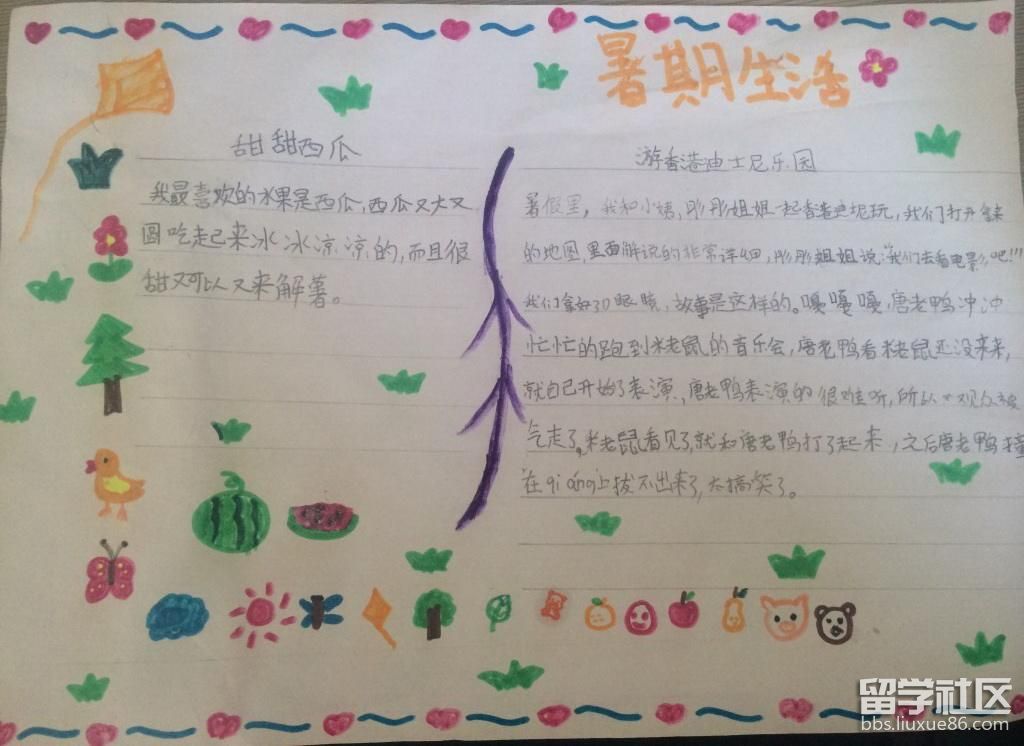 暑期生活
甜甜西瓜
我最喜欢的水果是西瓜,西瓜又大又
圆吃起来冰冰凉凉的,而且很
甜又可以又来解暑。
游香港迪士尼乐园
暑假里,我和小姨,彤彤姐姐一起香港迪尼玩,我们打开
的地图,里面解说的非常详细,彤彤姐姐说:“我们去看电影吧!!!”
我们拿好3D眼镜,故事是这样的。嘎嘎嘎,唐老鸭冲冲
忙忙的跑到米老鼠的音乐会,唐老鸭看米老鼠还没来来,
就自己开始了表演,唐老鸭表演的很难听,所以观众被
气走了,米老鼠看见了,就和唐老鸭打了起来,之后唐老鸭撞
在qiáng上拔不出来了,太搞笑了。
留学社区
bbs.liuxue86.com